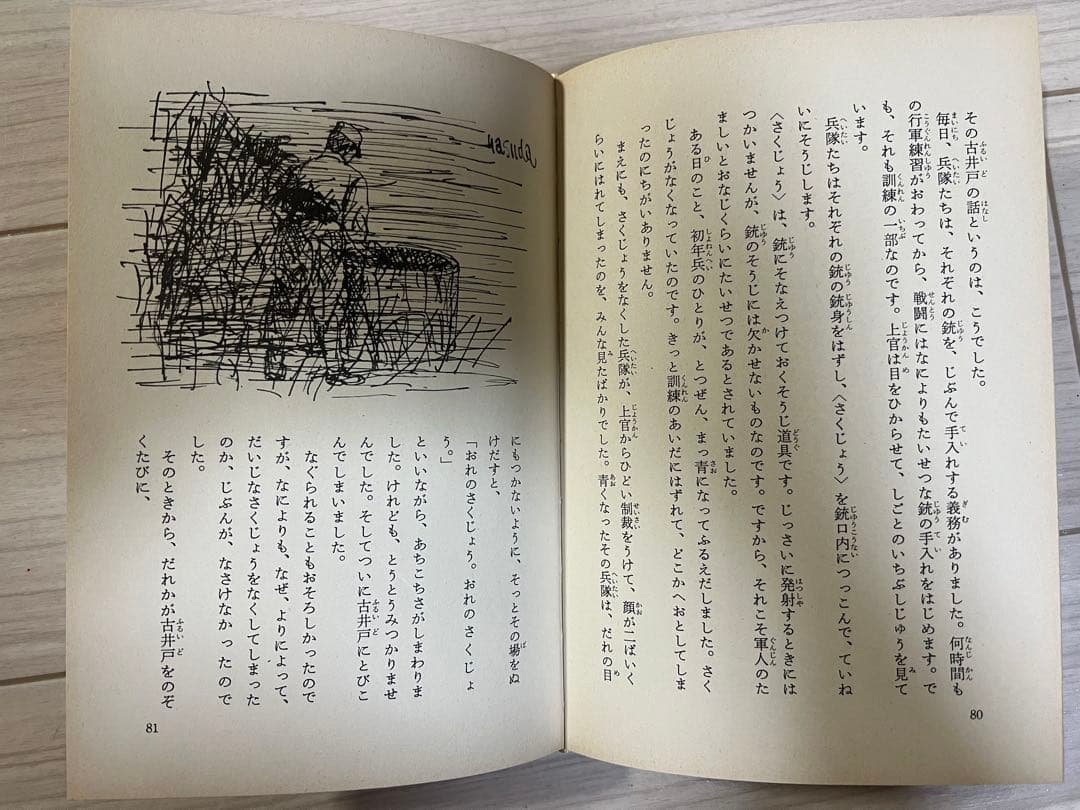 その古井戸の話というのは、こうでした。
毎日、兵隊たちは、それぞれの銃を、じぶんで手入れする義務がありました。何時間も
の行軍練習がおわってから、戦闘にはなによりもたいせつな銃の手入れをはじめます。で
も、それも訓練の一部なのです。上官は目をひからせて、しごとのいちぶしじゅうを見て
います。
兵隊たちはそれぞれの銃の銃身をはずし、〈さくじょう〉を銃口内につっこんで、ていね
いにそうじします。
〈さくじょう〉は、銃にそなえつけておくそうじ道具です。じっさいに発射するときには
つかいませんが、銃のそうじには欠かせないものなのです。ですから、それこそ軍人のた
ましいとおなじくらいにたいせつであるとされていました。
ある日のこと、初年兵のひとりが、とつぜん、まっ青になってふるえだしました。さく
じょうがなくなっていたのです。きっと訓練のあいだにはずれて、どこかへおとしてしま
ったのにちがいありません。
まえにも、さくじょうをなくした兵隊が、上官からひどい制裁をうけて、顔が二ばいく
らいにはれてしまったのを、みんな見たばかりでした。青くなったその兵隊は、だれの目
80
yasuda
にもつかないように、そっとその場をぬ
けだすと、
「おれのさくじょう。おれのさくじょ
う。」
といいながら、あちこちさがしまわりま
した。けれども、とうとうみつかりませ
んでした。そしてついに古井戸にとびこ
んでしまいました。
なぐられることもおそろしかったので
すが、なによりも、なぜ、よりによって、
だいじなさくじょうをなくしてしまった
のか、じぶんが、なさけなかったので
した。
そのときから、だれかが古井戸をのぞ
くたびに、
81